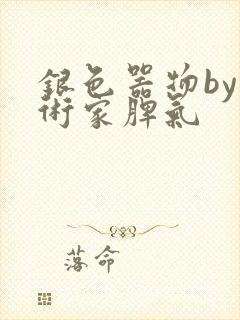 銀色器物by
術家脾氣
落命